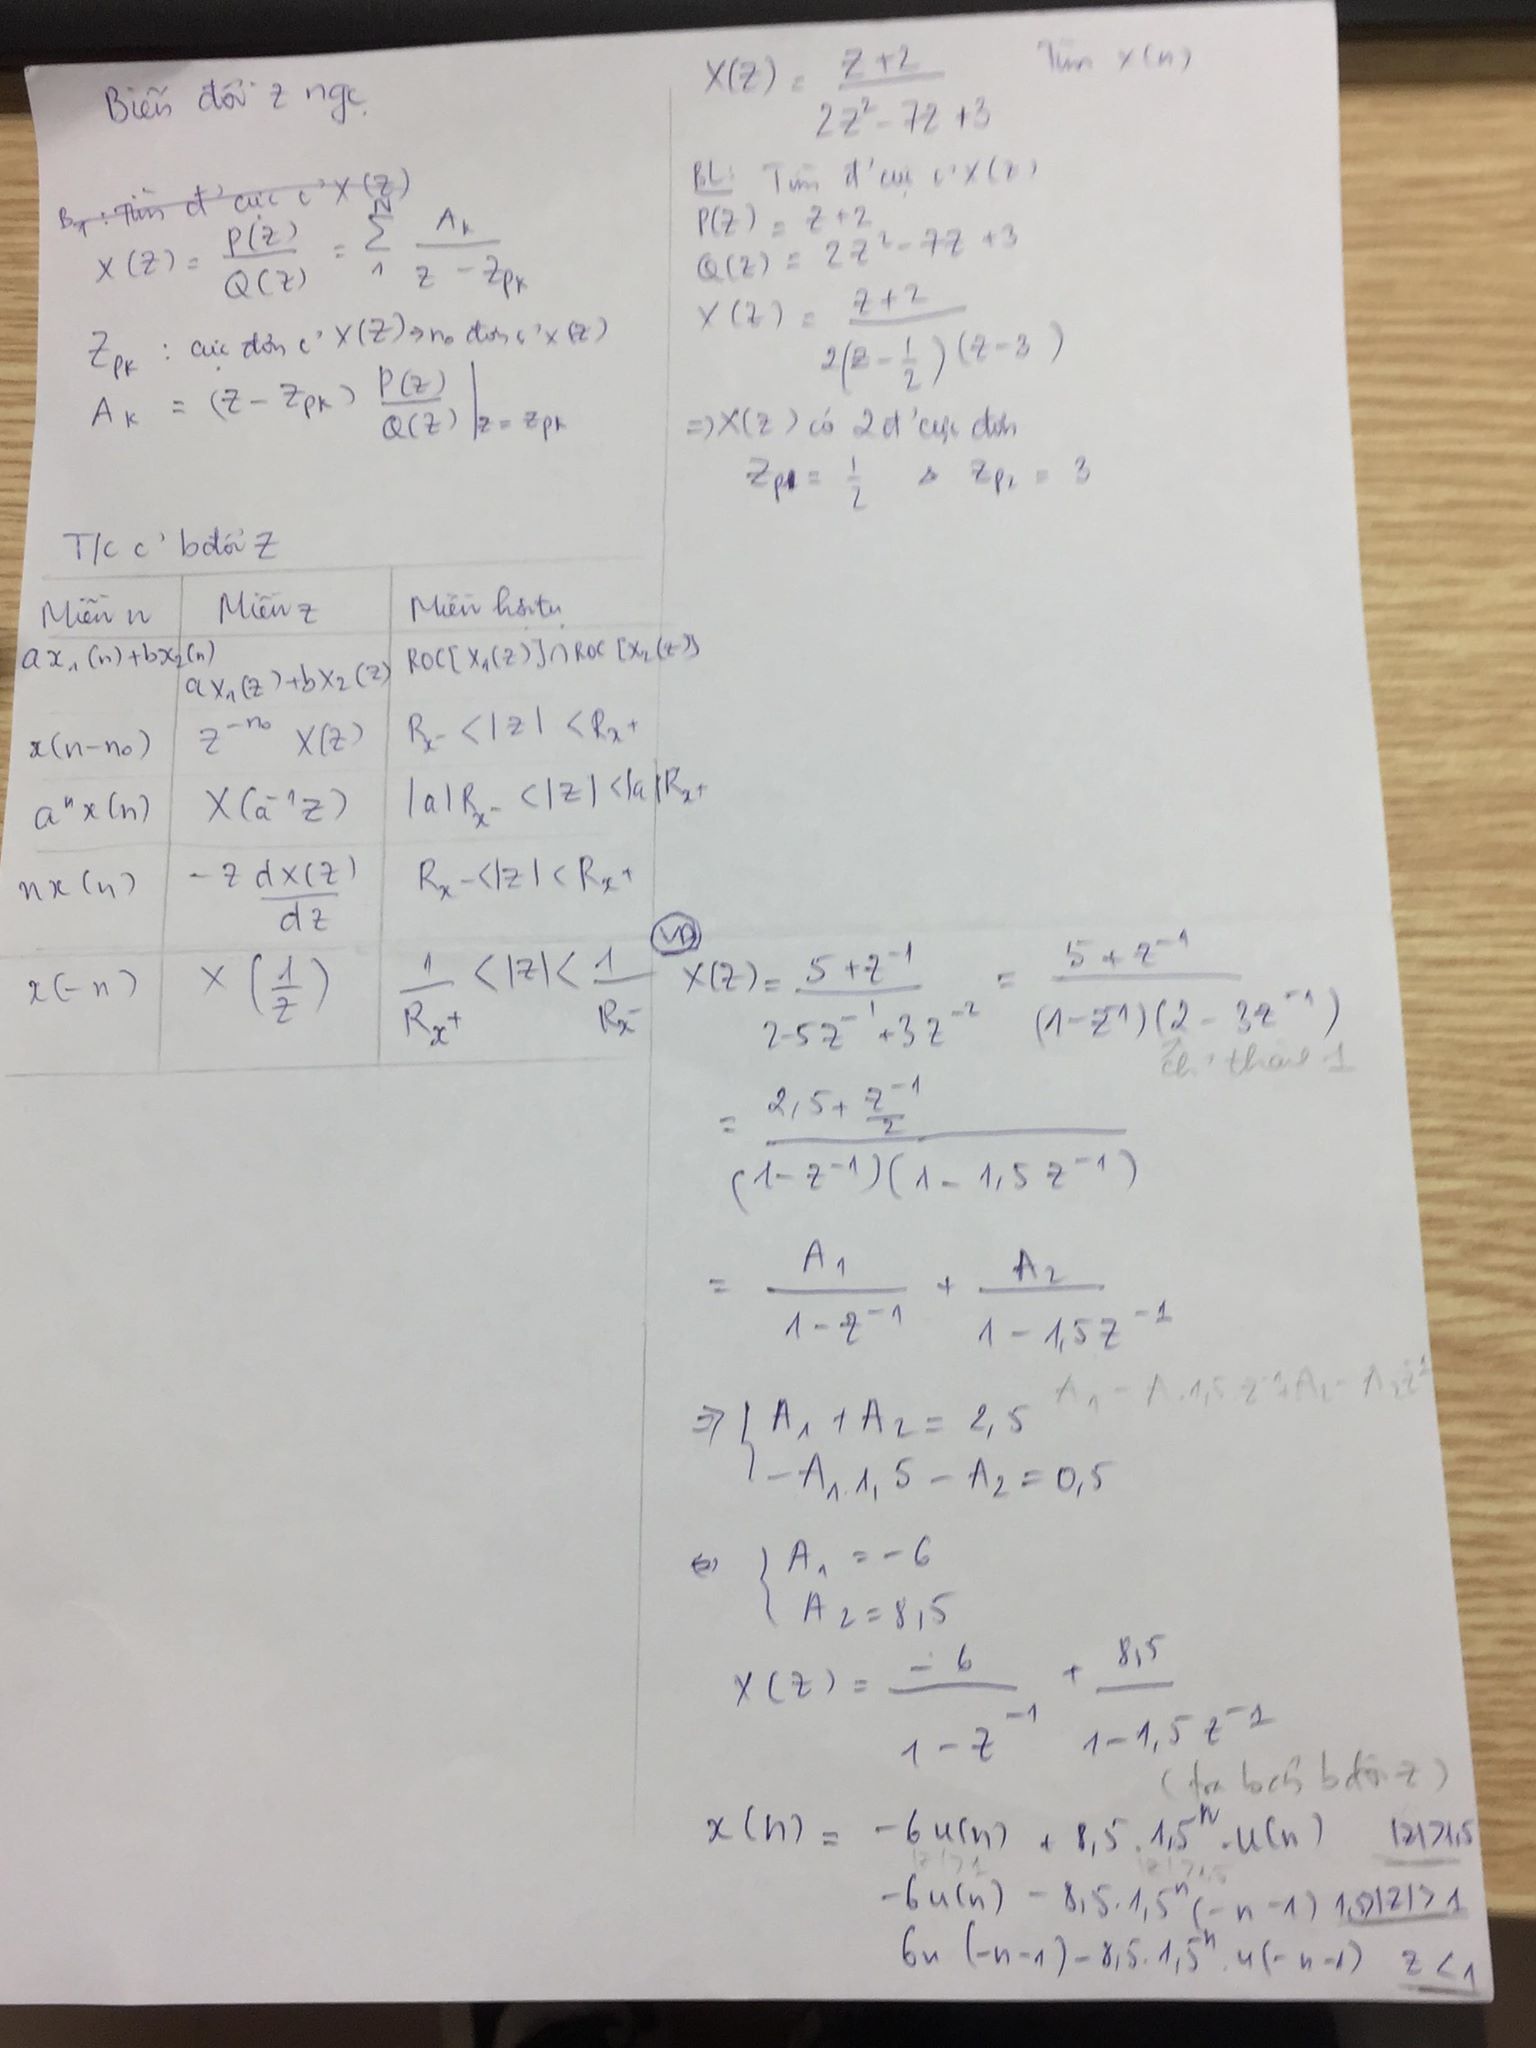 Biến đổi z ngc.
B1: Tìm đ' cực c' X(Z)
X(Z) = P(Z)/Q(Z) = N Σ 1 Ak/(z - Zpk)
Zpk : cực đơn c' X(Z) → no đơn c' X(Z)
Ak = (Z - Zpk) P(Z)/Q(Z) | z = Zpk
T/c c' b đổi Z
Miền n | Miền z | Miền hội tụ
ax1(n)+bx2(n) | aX1(z)+bX2(z) | ROC[X1(Z)]∩ROC[X2(Z)]
x(n-n0) | z^-n0 X(Z) | Rx- <|z| <Rx+
a^n x(n) | X(a^-1 z) | |a|Rx- <|z| <|a|Rx+
nx(n) | -z dX(z)/dz | Rx- <|z| < Rx+
x(-n) | X(1/z) | 1/Rx+ <|z| < 1/Rx-
X(Z) = (z+2)/(2z²-7z+3) Tìm x(n)
BL: Tìm đ' cực c' X(z)
P(Z) = z+2
Q(z) = 2z²-7z+3
X(Z) = (z+2)/(2(z-1/2)(z-3))
=> X(z) có 2 đ' cực đơn
Zp1 = 1/2 & Zp2 = 3
VD
X(Z) = (5+z^-1)/(2-5z^-1+3z^-2) = (5+z^-1)/((1-z^-1)(2-3z^-1))
= (2,5+z^-1/2)/((1-z^-1)(1-1,5z^-1))
= A1/(1-z^-1) + A2/(1-1,5z^-1)
=> { A1+A2 = 2,5
-A1.1,5-A2 = 0,5
<=> { A1 = -6
A2 = 8,5
X(z) = -6/(1-z^-1) + 8,5/(1-1,5z^-1)
x(n) = -6u(n) + 8,5.1,5^n.u(n) |z|>1,5
|z|>1 |z|>1,5
-6u(n) - 8,5.1,5^n(-n-1) 1,5>|z|>1
6u(-n-1)-8,5.1,5^n.u(-n-1) z<1